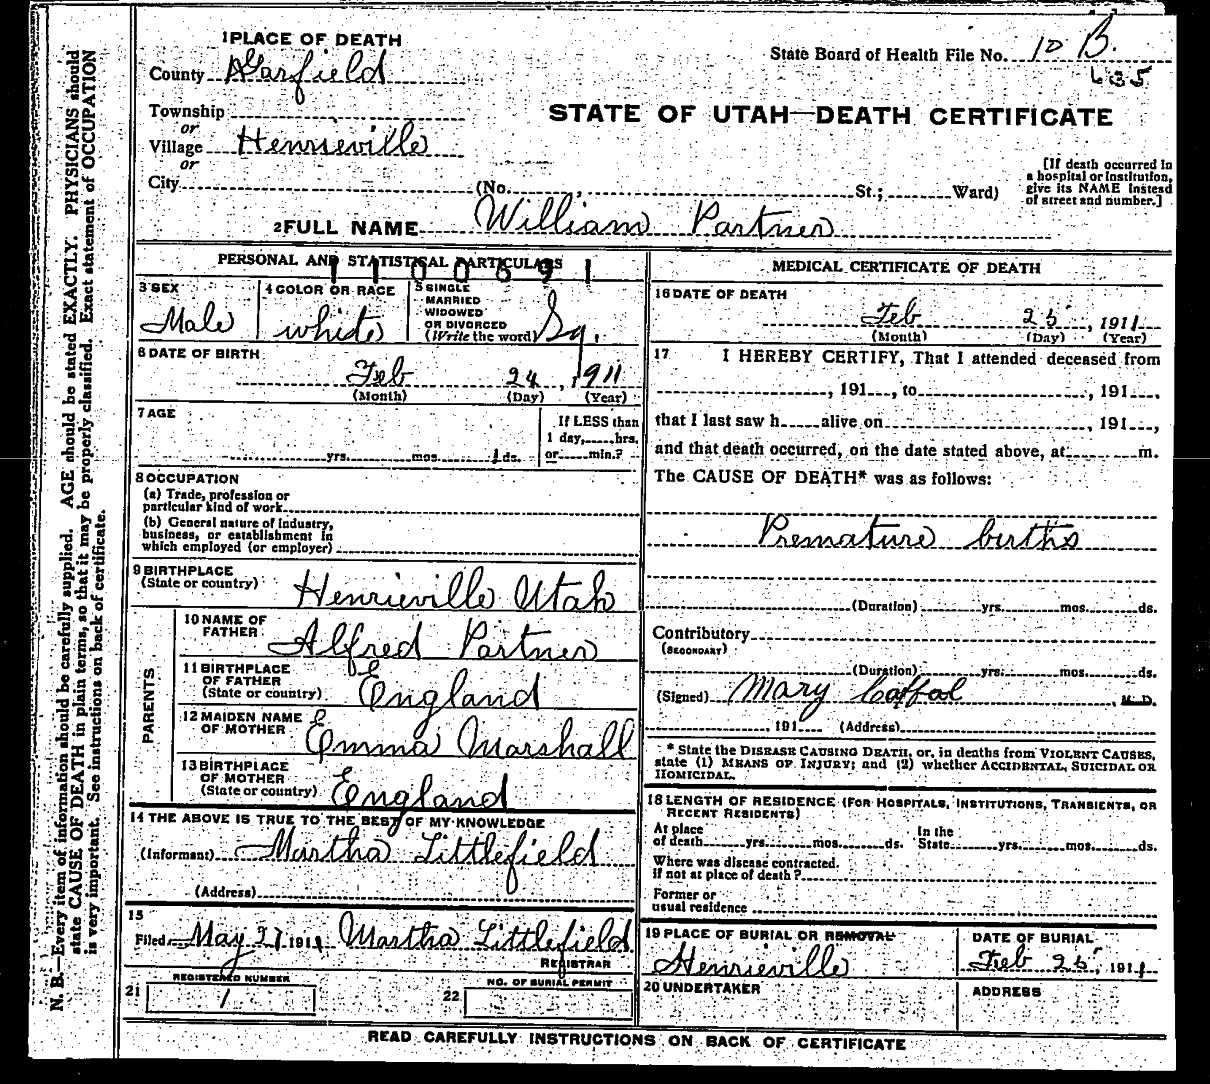 1 PLACE OF DEATH
State Board of Health File No. 10 B.
County Garfield
635
Township
STATE OF UTAH—DEATH CERTIFICATE
or
Village Henrieville
or
City (No. , St.; Ward)
[If death occurred in
a hospital or institution,
give its NAME instead
of street and number.]
2 FULL NAME William Partner
PERSONAL AND STATISTICAL PARTICULARS
1100691
3 SEX
Male
4 COLOR OR RACE
white
5 SINGLE
MARRIED
WIDOWED
OR DIVORCED
(Write the word) Sg.
6 DATE OF BIRTH
Feb 24, 1911
(Month) (Day) (Year)
7 AGE
If LESS than
1 day, hrs.
yrs. mos. 1 ds. or min.?
8 OCCUPATION
(a) Trade, profession or
particular kind of work
(b) General nature of industry,
business, or establishment in
which employed (or employer)
9 BIRTHPLACE
(State or country) Henrieville Utah
PARENTS
10 NAME OF
FATHER Alfred Partner
11 BIRTHPLACE
OF FATHER
(State or country) England
12 MAIDEN NAME
OF MOTHER Emma Marshall
13 BIRTHPLACE
OF MOTHER
(State or country) England
14 THE ABOVE IS TRUE TO THE BEST OF MY KNOWLEDGE
(Informant) Martha Littlefield
(Address)
15
Filed May 27 1911 Martha Littlefield
REGISTRAR
REGISTERED NUMBER
21 1
NO. OF BURIAL PERMIT
22
MEDICAL CERTIFICATE OF DEATH
16 DATE OF DEATH
Feb 25, 1911
(Month) (Day) (Year)
17 I HEREBY CERTIFY, That I attended deceased from
, 191 , to , 191 ,
that I last saw h alive on , 191 ,
and that death occurred, on the date stated above, at m.
The CAUSE OF DEATH* was as follows:
Premature births
(Duration) yrs. mos. ds.
Contributory
(SECONDARY)
(Duration) yrs. mos. ds.
(Signed) Mary Caffal , M. D.
, 191 (Address)
* State the DISEASE CAUSING DEATH, or, in deaths from VIOLENT CAUSES,
state (1) MEANS OF INJURY; and (2) whether ACCIDENTAL, SUICIDAL OR
HOMICIDAL.
18 LENGTH OF RESIDENCE (FOR HOSPITALS, INSTITUTIONS, TRANSIENTS, OR
RECENT RESIDENTS)
At place
of death yrs. mos. ds.
In the
State yrs. mos. ds.
Where was disease contracted.
if not at place of death?
Former or
usual residence
19 PLACE OF BURIAL OR REMOVAL
Henrieville
DATE OF BURIAL
Feb 25, 1911
20 UNDERTAKER
ADDRESS
READ CAREFULLY INSTRUCTIONS ON BACK OF CERTIFICATE
N. B.—Every item of information should be carefully supplied. AGE should be stated EXACTLY. PHYSICIANS should
state CAUSE OF DEATH in plain terms, so that it may be properly classified. Exact statement of OCCUPATION
is very important. See instructions on back of certificate.